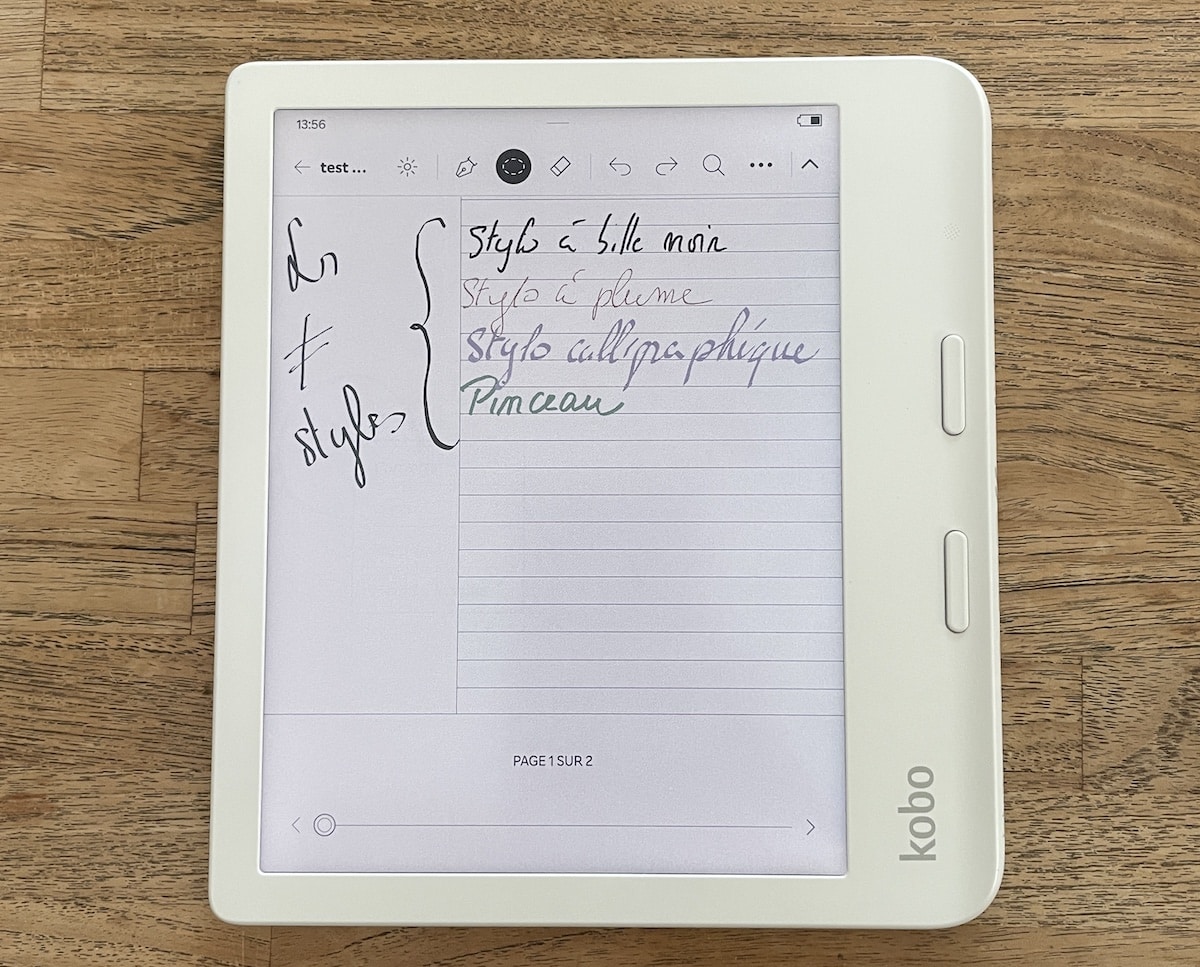 13:56
test ...
ds
≠
styles
Stylo à bille noir
Stylo à plume
Stylo calligraphique
Pinceau
PAGE 1 SUR 2
kobo